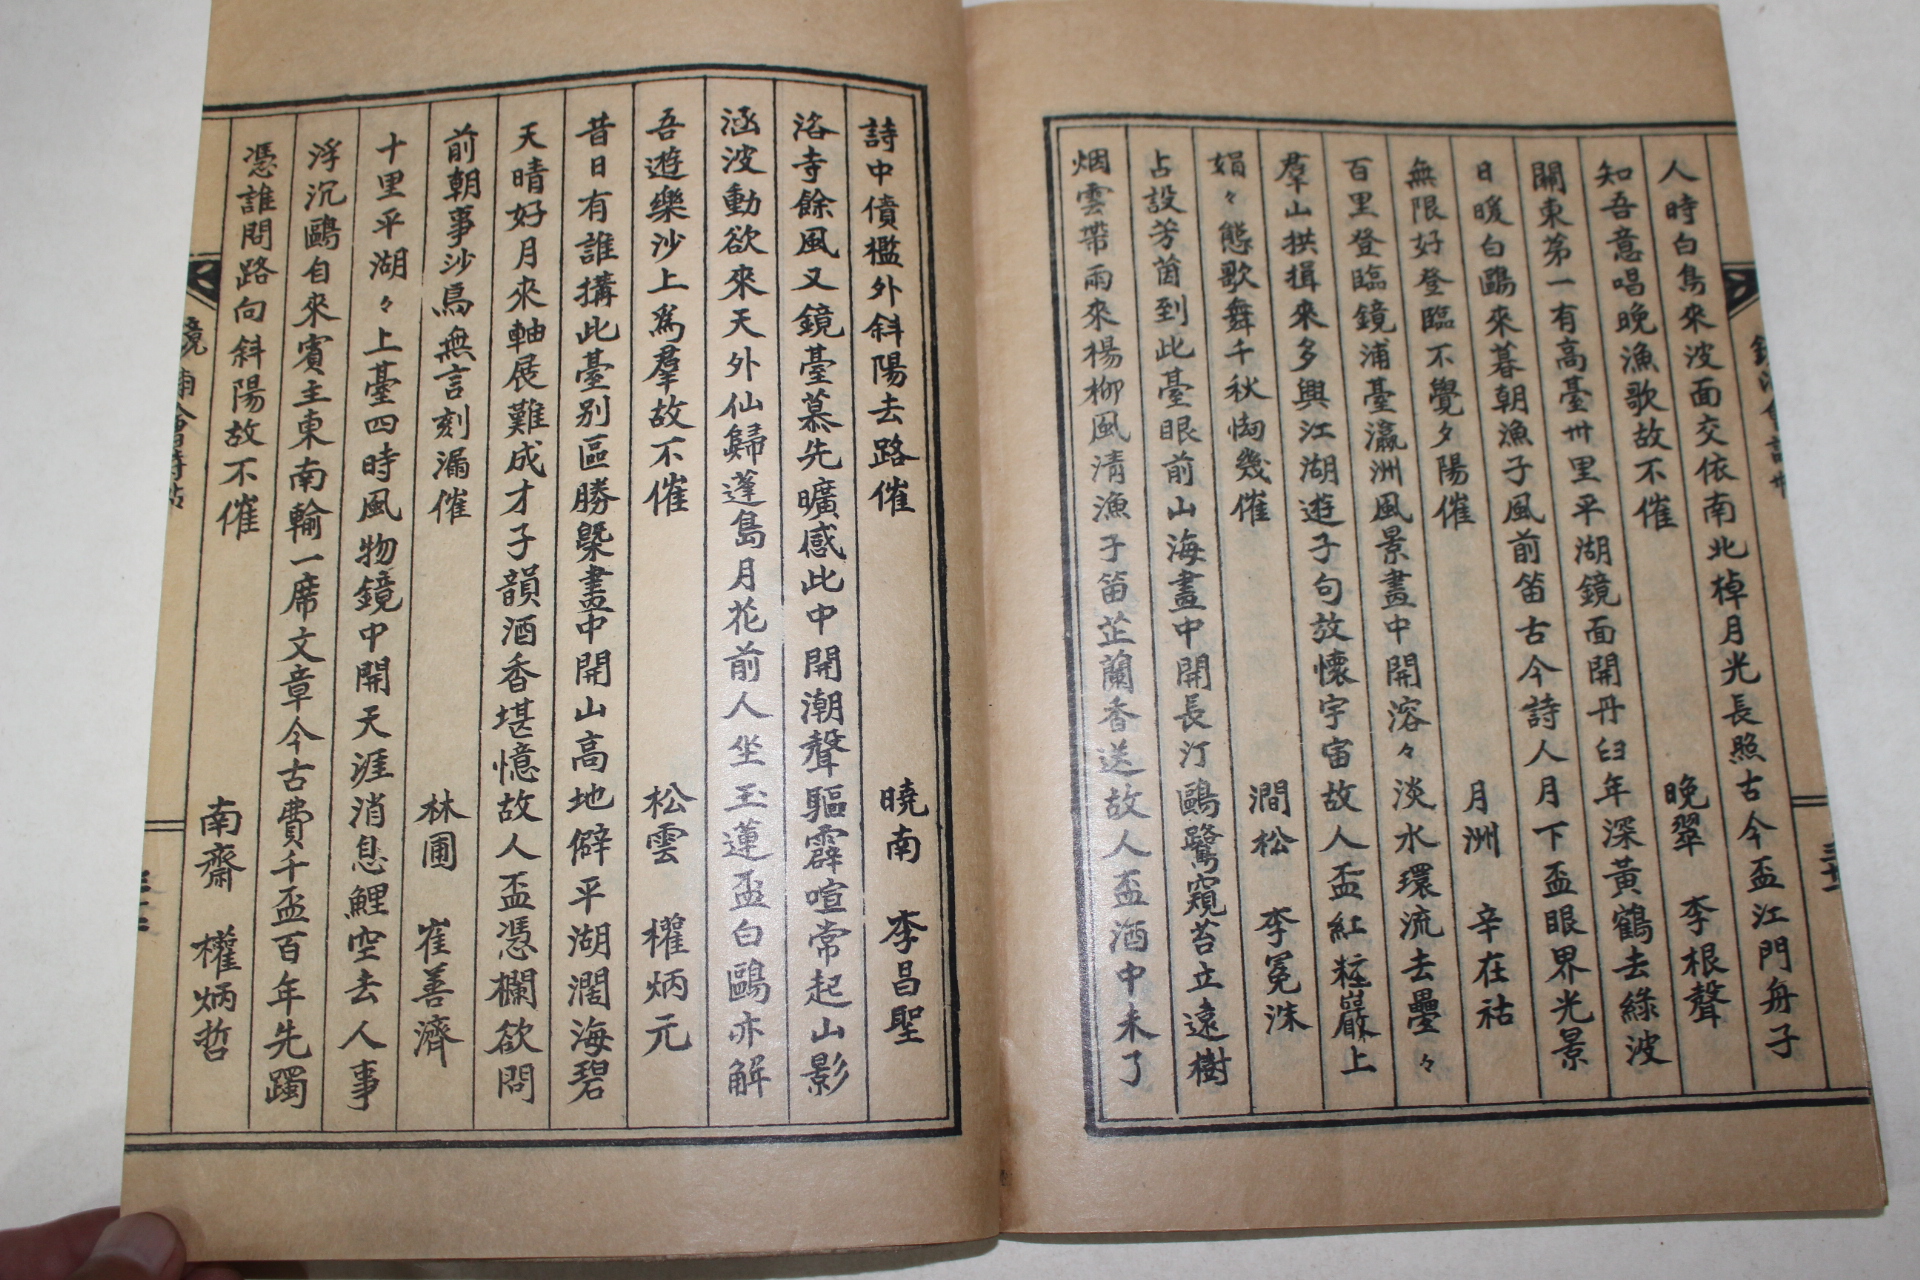 人時白鳥來波面交依南北棹月光長照古今盃江門舟子
知吾意唱晚漁歌故不催 晚翠 李根聲
關東第一有高臺卅里平湖鏡面開丹臼年深黃鶴去綠波
日暖白鷗來暮朝漁子風前笛古今詩人月下盃眼界光景
無限好登臨不覺夕陽催 月洲 辛在祜
百里登臨鏡浦臺瀛洲風景畫中開溶々淡水環流去疊々
羣山拱揖來多興江湖遊子句放懷宇宙故人盃紅粧巖上
娟々態歌舞千秋恸幾催 澗松 李冕洙
占設芳茵到此臺眼前山海畫中開長汀鷗鷺窺苔立遠樹
烟雲帶雨來楊柳風清漁子笛芷蘭香送故人盃酒中未了
詩中債檻外斜陽去路催 曉南 李昌聖
洛寺餘風又鏡臺慕先曠感此中開潮聲驅霹喧常起山影
涵波動欲來天外仙歸蓬島月花前人坐玉蓮盃白鷗亦解
吾遊樂沙上爲羣故不催 松雲 權炳元
昔日有誰搆此臺別區勝槩畫中開山高地僻平湖濶海碧
天晴好月來軸展難成才子韻酒香堪憶故人盃憑欄欲問
前朝事沙鳥無言刻漏催 林圃 崔善濟
十里平湖々上臺四時風物鏡中開天涯消息鯉空去人事
浮沉鷗自來賓主東南輸一席文章今古費千盃百年先躅
憑誰問路向斜陽故不催 南齋 權炳哲